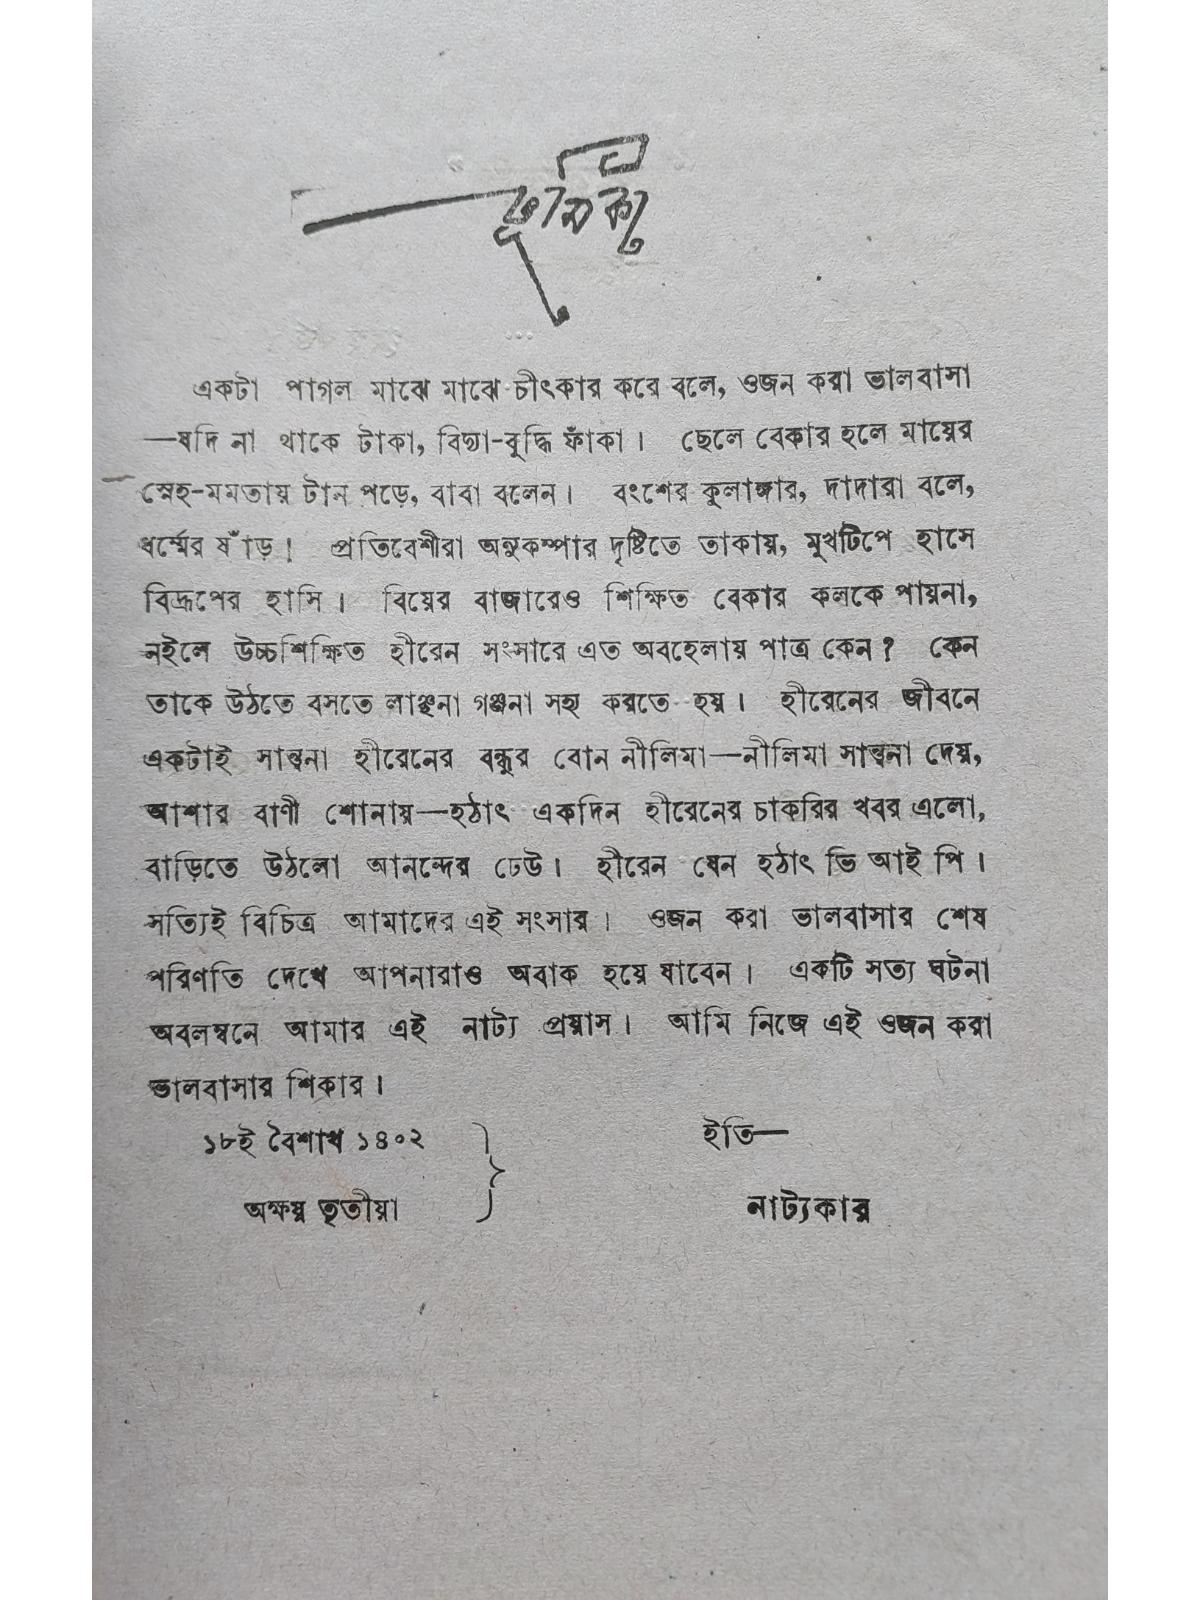 ভূমিকা
একটা পাগল মাঝে মাঝে চীৎকার করে বলে, ওজন করা ভালবাসা
—যদি না থাকে টাকা, বিদ্যা-বুদ্ধি ফাঁকা। ছেলে বেকার হলে মায়ের
স্নেহ-মমতায় টান পড়ে, বাবা বলেন। বংশের কুলাঙ্গার, দাদারা বলে,
ধর্ম্মের ষাঁড়! প্রতিবেশীরা অনুকম্পার দৃষ্টিতে তাকায়, মুখটিপে হাসে
বিদ্রূপের হাসি। বিয়ের বাজারেও শিক্ষিত বেকার কলকে পায়না,
নইলে উচ্চশিক্ষিত হীরেন সংসারে এত অবহেলায় পাত্র কেন? কেন
তাকে উঠতে বসতে লাঞ্ছনা গঞ্জনা সহ্য করতে হয়। হীরেনের জীবনে
একটাই সান্ত্বনা হীরেনের বন্ধুর বোন নীলিমা—নীলিমা সান্ত্বনা দেয়,
আশার বাণী শোনায়—হঠাৎ একদিন হীরেনের চাকরির খবর এলো,
বাড়িতে উঠলো আনন্দের ঢেউ। হীরেন যেন হঠাৎ ভি আই পি।
সত্যিই বিচিত্র আমাদের এই সংসার। ওজন করা ভালবাসার শেষ
পরিণতি দেখে আপনারাও অবাক হয়ে যাবেন। একটি সত্য ঘটনা
অবলম্বনে আমার এই নাট্য প্রয়াস। আমি নিজে এই ওজন করা
ভালবাসার শিকার।
১৮ই বৈশাখ ১৪০২ ইতি—
অক্ষয় তৃতীয়া নাট্যকার